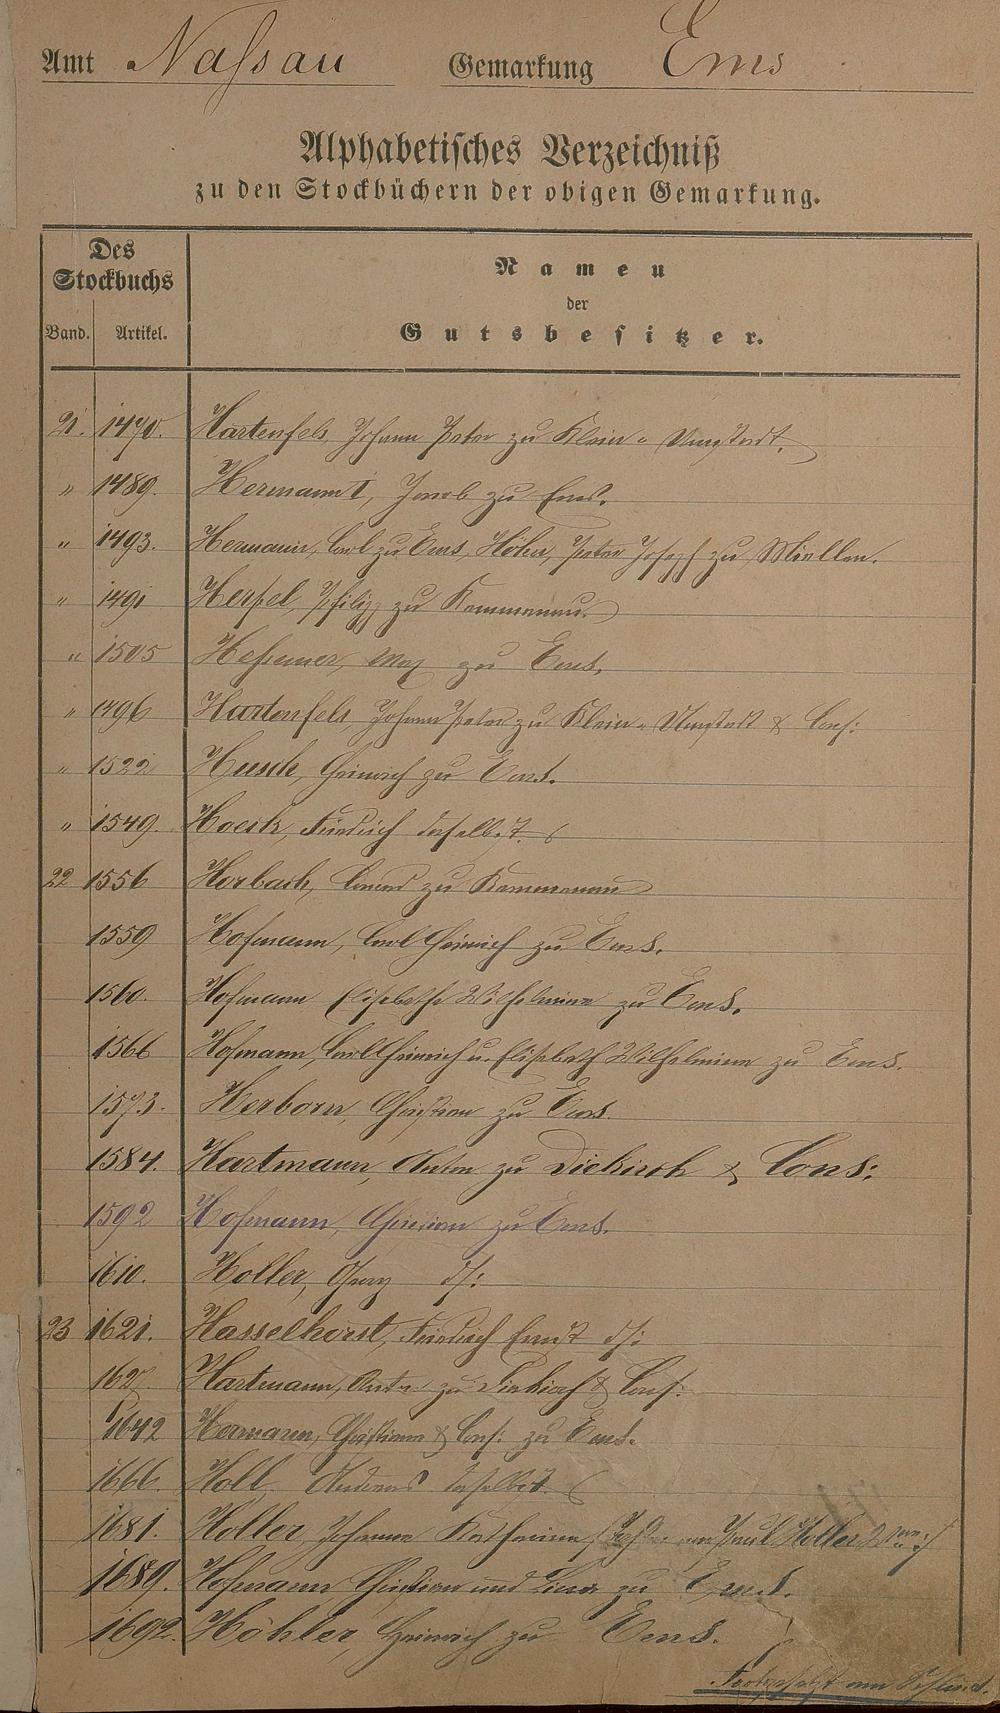 Amt Nassau Gemarkung Ems
Alphabetisches Verzeichniß
zu den Stockbüchern der obigen Gemarkung.
Des
Stockbuchs
Band. Artikel.
Namen
der
Gutsbesitzer.
21. 1470. Hartenfels, Johann Peter zu Klein-Umstadt.
" 1489. Hermann I, Jacob zu Ems.
" 1493. Hermann, Carl zu Ems, Höhn, Peter Joseph zu Miellen.
" 1491 Herpel, Philipp zu Kemmenau.
" 1505 Heßemer, Max zu Ems.
" 1496 Hartenfels, Johann Peter zu Klein-Umstadt & Cons:
" 1522 Husch, Heinrich zu Ems.
" 1549. Friedrich daselbst.
22 1556 Horbach, zu Kemmenau
1559 Hofmann, Carl Heinrich zu Ems.
1560. Hofmann Elisabethe Wilhelmine zu Ems.
1566 Hofmann, Carl Heinrich u. Elisabeth Wilhelmine zu Ems.
1573. Herborn, Christian zu Ems.
1584. Hartmann, Anton zu Diekirch & Cons:
1592 Hofmann, Christian zu Ems.
1610. Holler, Georg ds:
23 1621. Hasselhorst, Friedrich Ernst ds:
Hartmann, Anton zu Diekirch & Cons:
1642 Hermann, Christiane & Cons: zu Ems.
1666. Holl, Andreas daselbst.
1681. Holler, Johanna Katharina Paul Holler
1689. Hofmann Christian und Lina zu Ems.
1692. Höhler, Heinrich zu Ems.
Fortgesetzt am